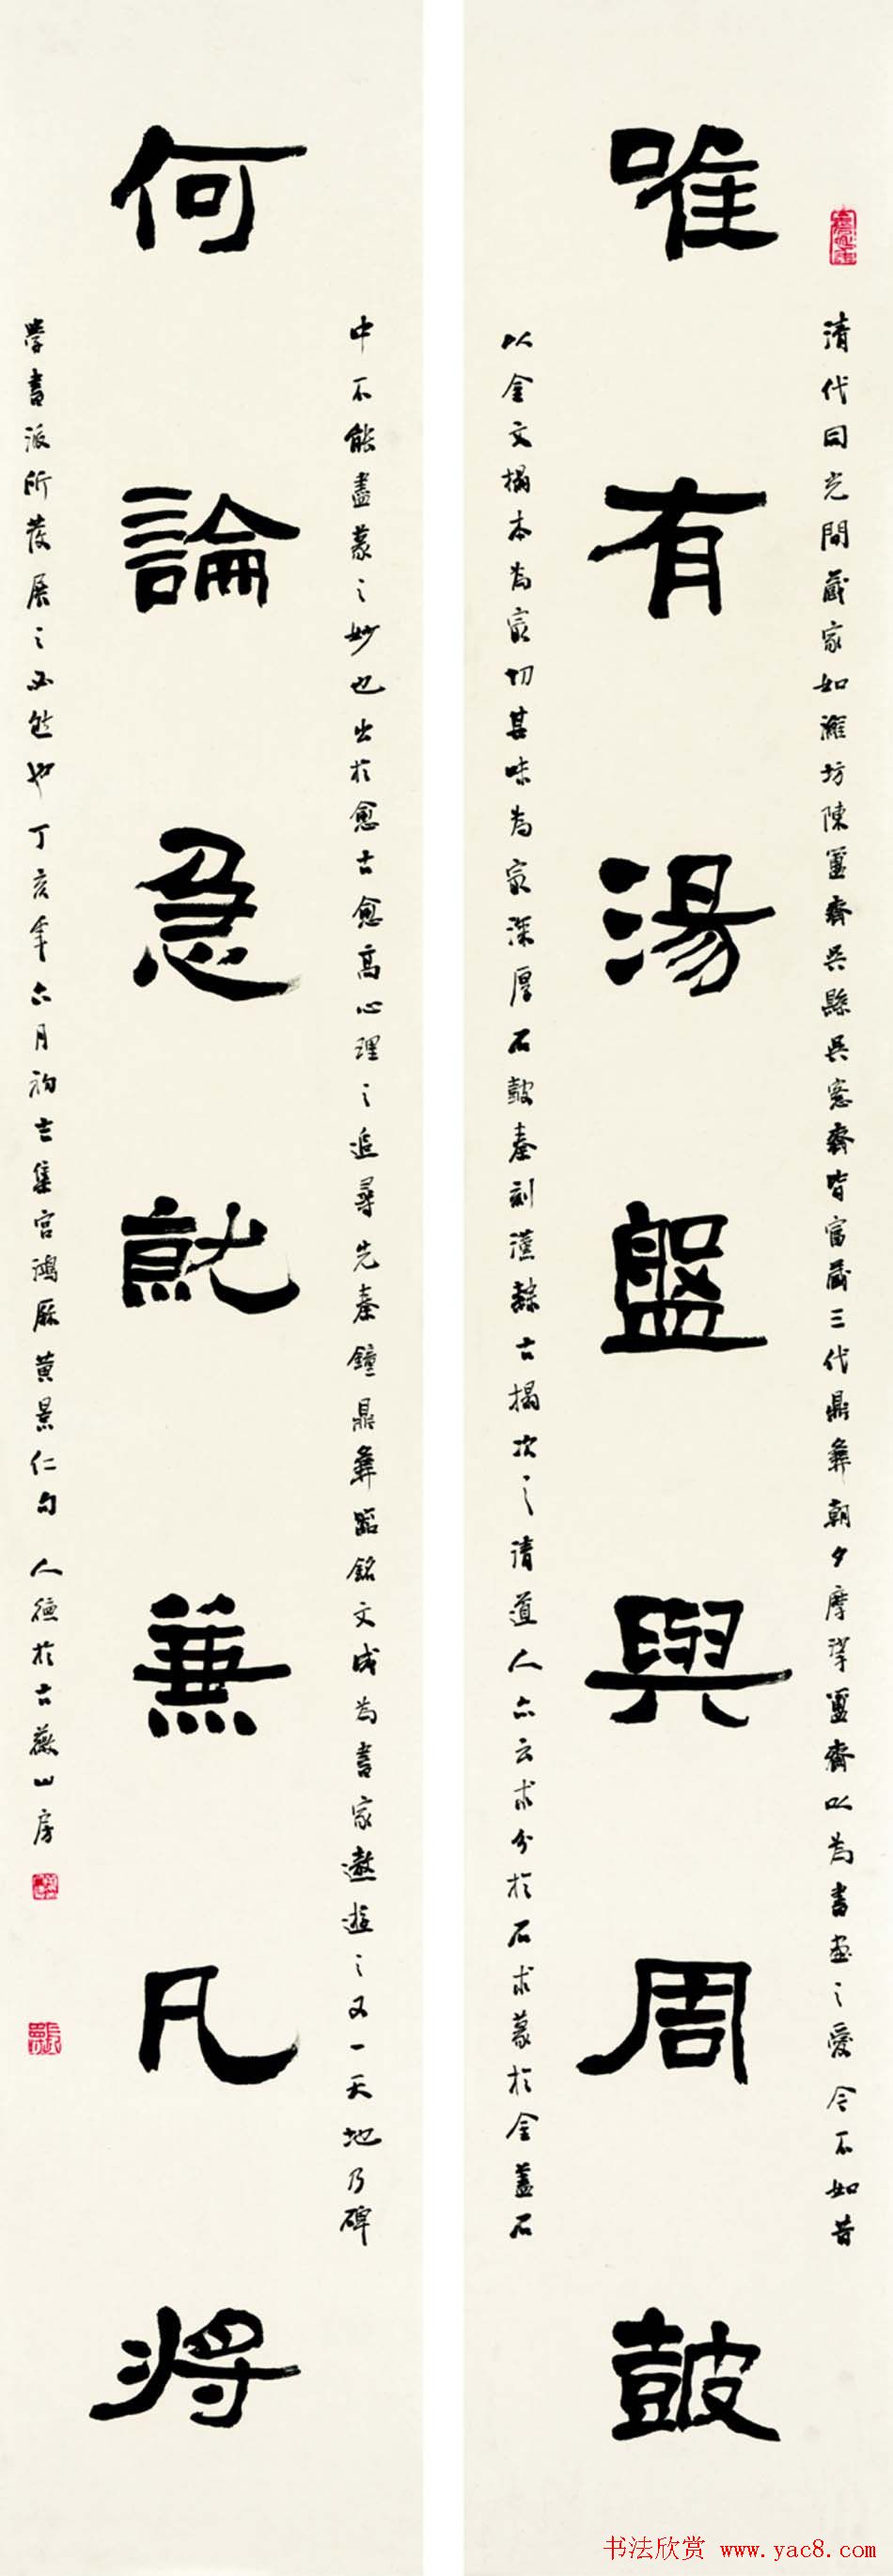 唯有湯盤與周鼓
清代同光間藏家如濰坊陳簠齋吳縣吳愙齋皆富藏三代鼎彝朝夕摩挲簠齋以為書畫之愛今不如昔
以金文搨本為最切其味為最深厚石鼓秦刻漢隸古搨次之清道人亦云求分於石求篆於金蓋石
何論急就兼凡將
中不能盡篆之妙也出於愈古愈高心理之追尋先秦鐘鼎彝器銘文成為書家遨遊之又一天地乃碑
學書派所發展之必然也丁亥年六月初吉集宮鴻歷黃景仁句 人德於古薇山房
书法欣赏 www.yac8.com